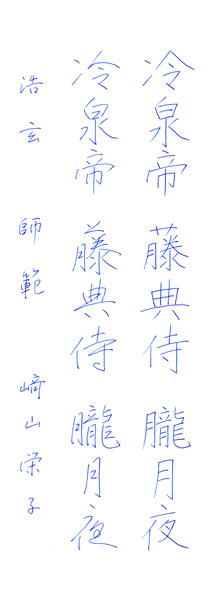 冷泉帝 藤典侍 朧月夜
冷泉帝 藤典侍 朧月夜
浩玄 師範 﨑山栄子